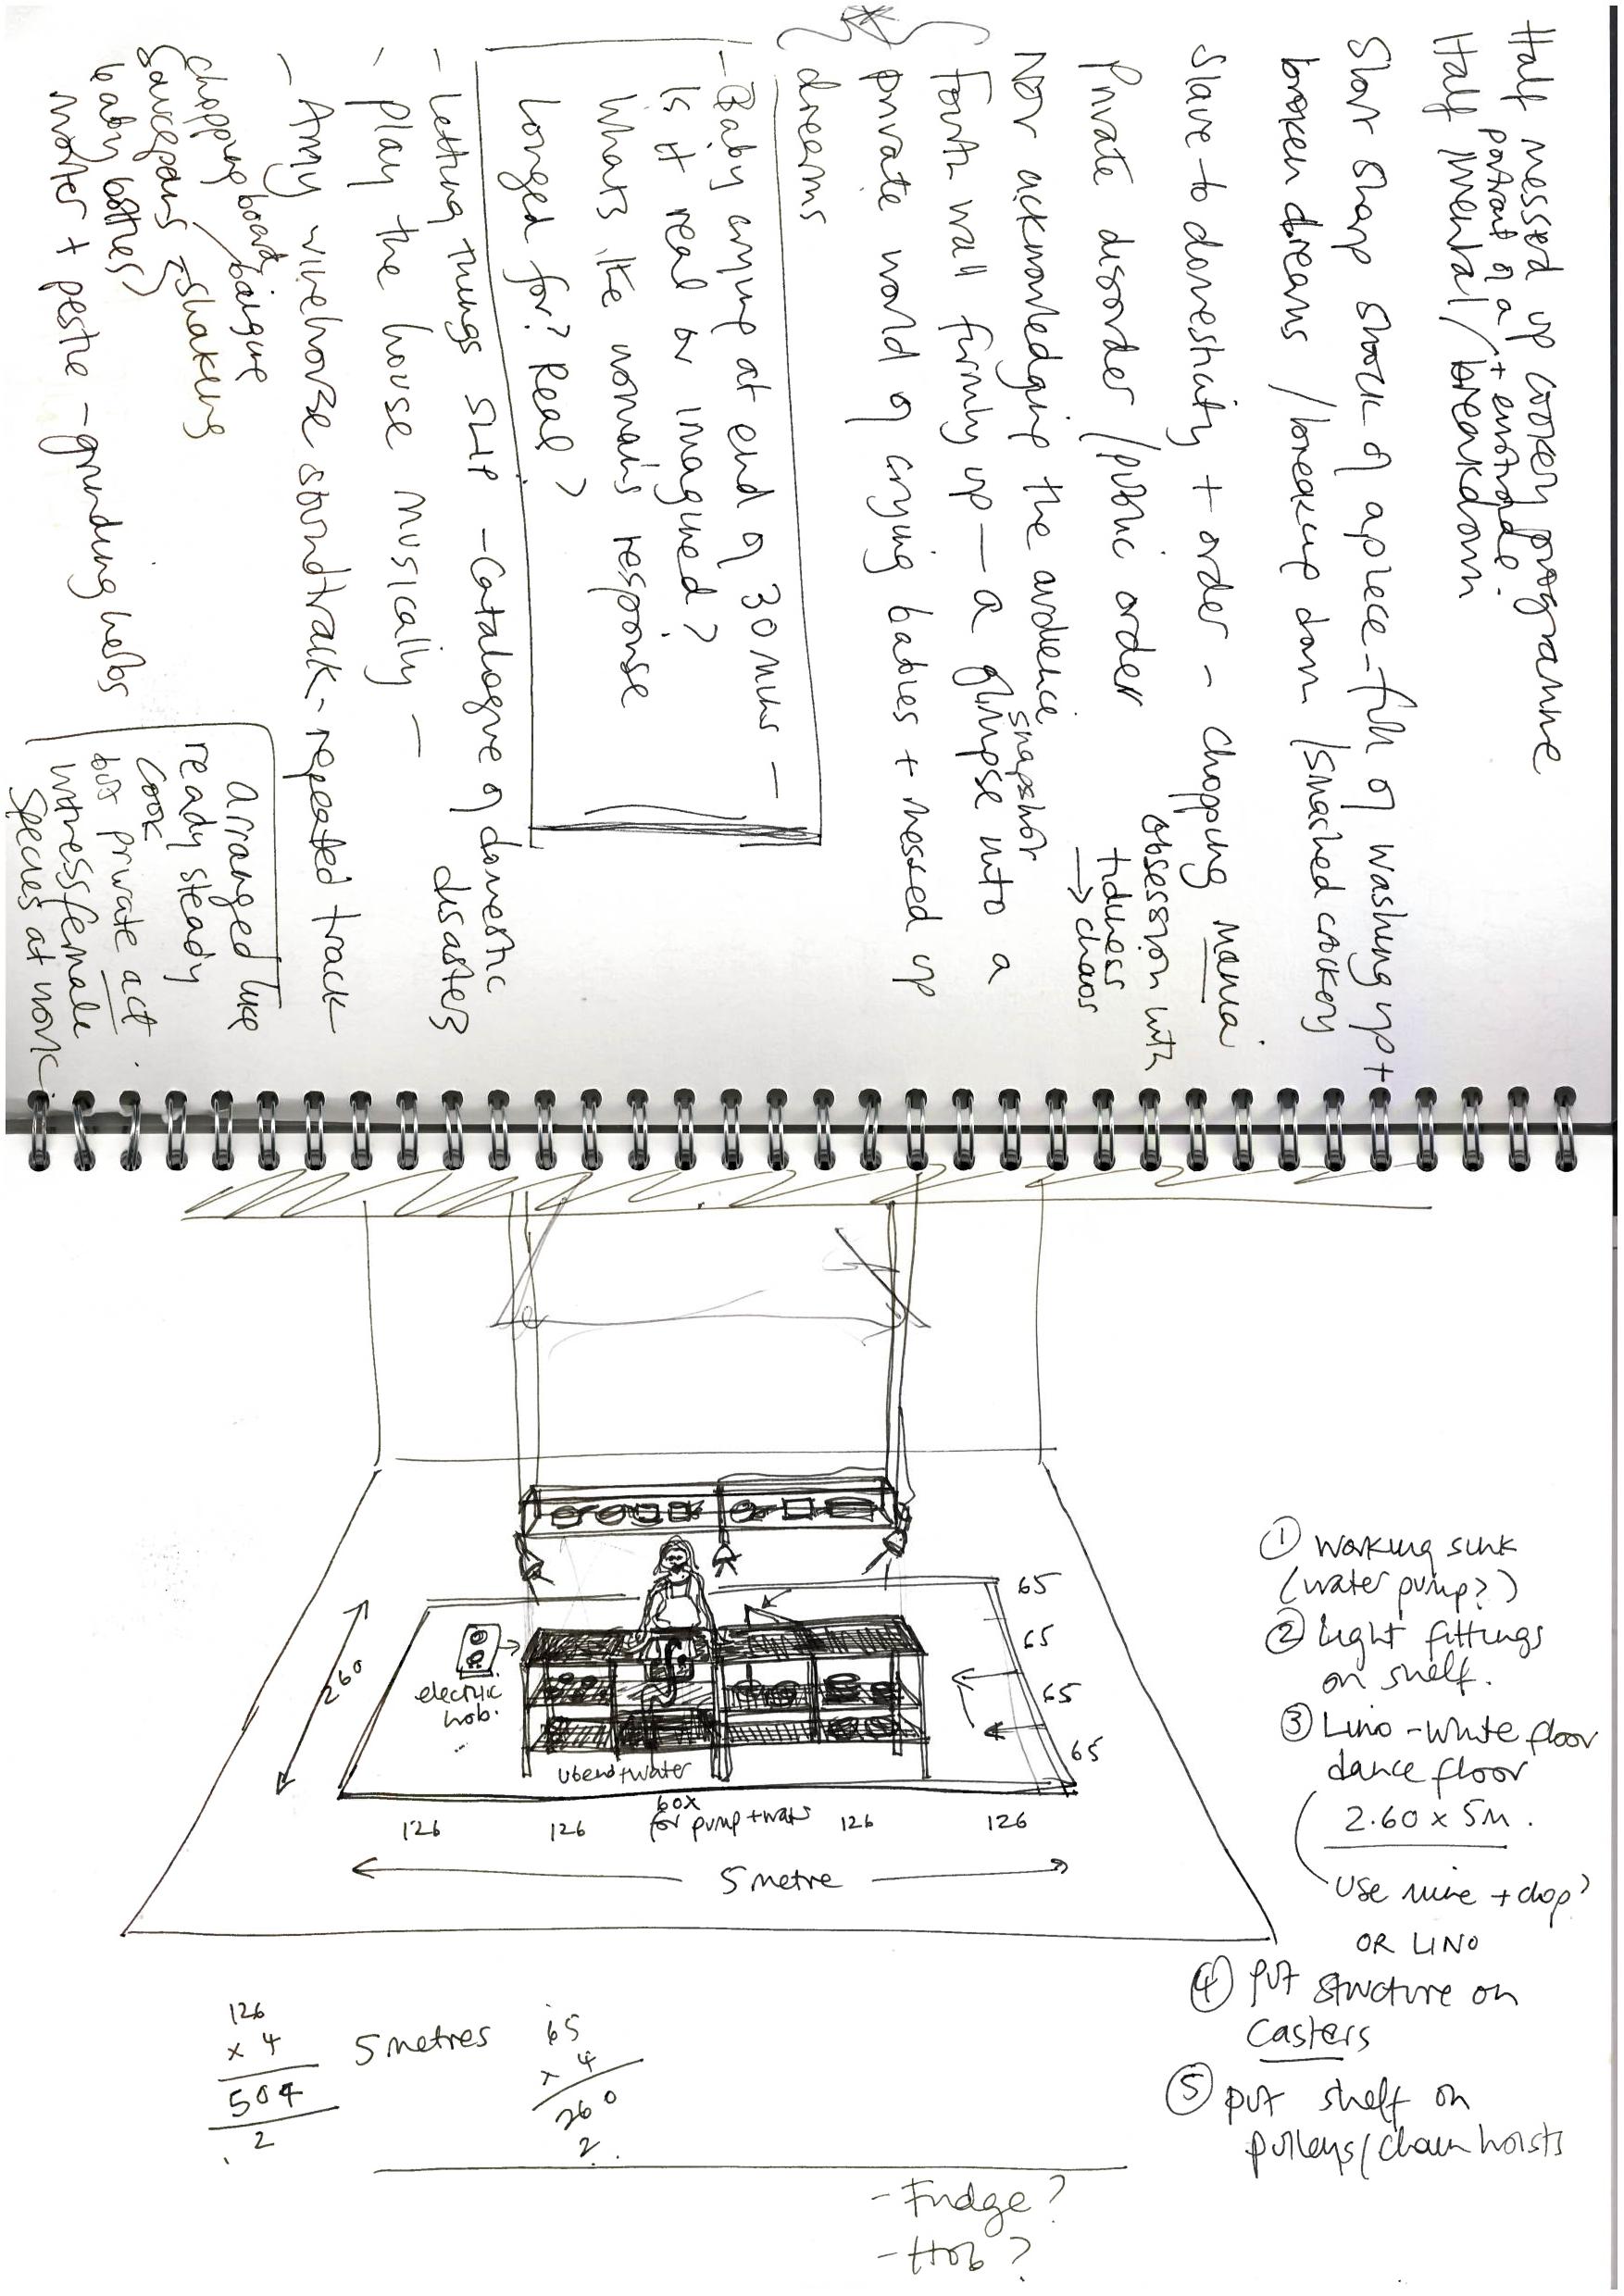 Half messed up cookery programme
portrait of a
+ entrotde.
Half mental / breakdown
Short sharp shock of a piece - full of washing up +
broken dreams / breakup down / smashed crockery
Slave to domesticity + order - chopping mania
obsession with
tidiness
→ chaos
Private disorder / public order
Not acknowledging the audience
snapshot
Fourth wall firmly up — a glimpse into a
private world of crying babies + messed up
dreams
- Baby crying at end of 30 mins -
Is it real or imagined?
Whats the womans response
Longed for? Real?
- Letting things slip - Catalogue of domestic
disasters
- Play the house musically -
- Amy winehouse soundtrack - repeated track
chopping board / baigue
saucepans - shakers
baby bottles
Morter + pestle - grinding herbs
Arranged like
ready steady
cook
but private act.
witness female
species at work.
65
65
65
65
260
electric
hob.
Ubend + water
60x
for pump + water
126
126
126
126
5 metre
① Working sink
(water pump?)
② Light fittings
on shelf.
③ Lino - white floor
dance floor
2.60 x 5m.
Use mine + chop?
OR LINO
④ Put structure on
casters
⑤ put shelf on
pulleys / chain hoists
126
x 4
504
2
5 metres
65
x 4
260
2
- Fudge?
- Hob?